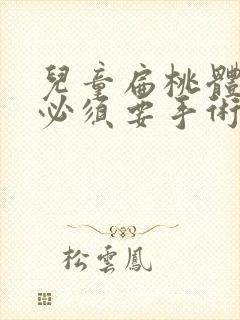 兒童扁桃體
必須要手術
松雲鳳